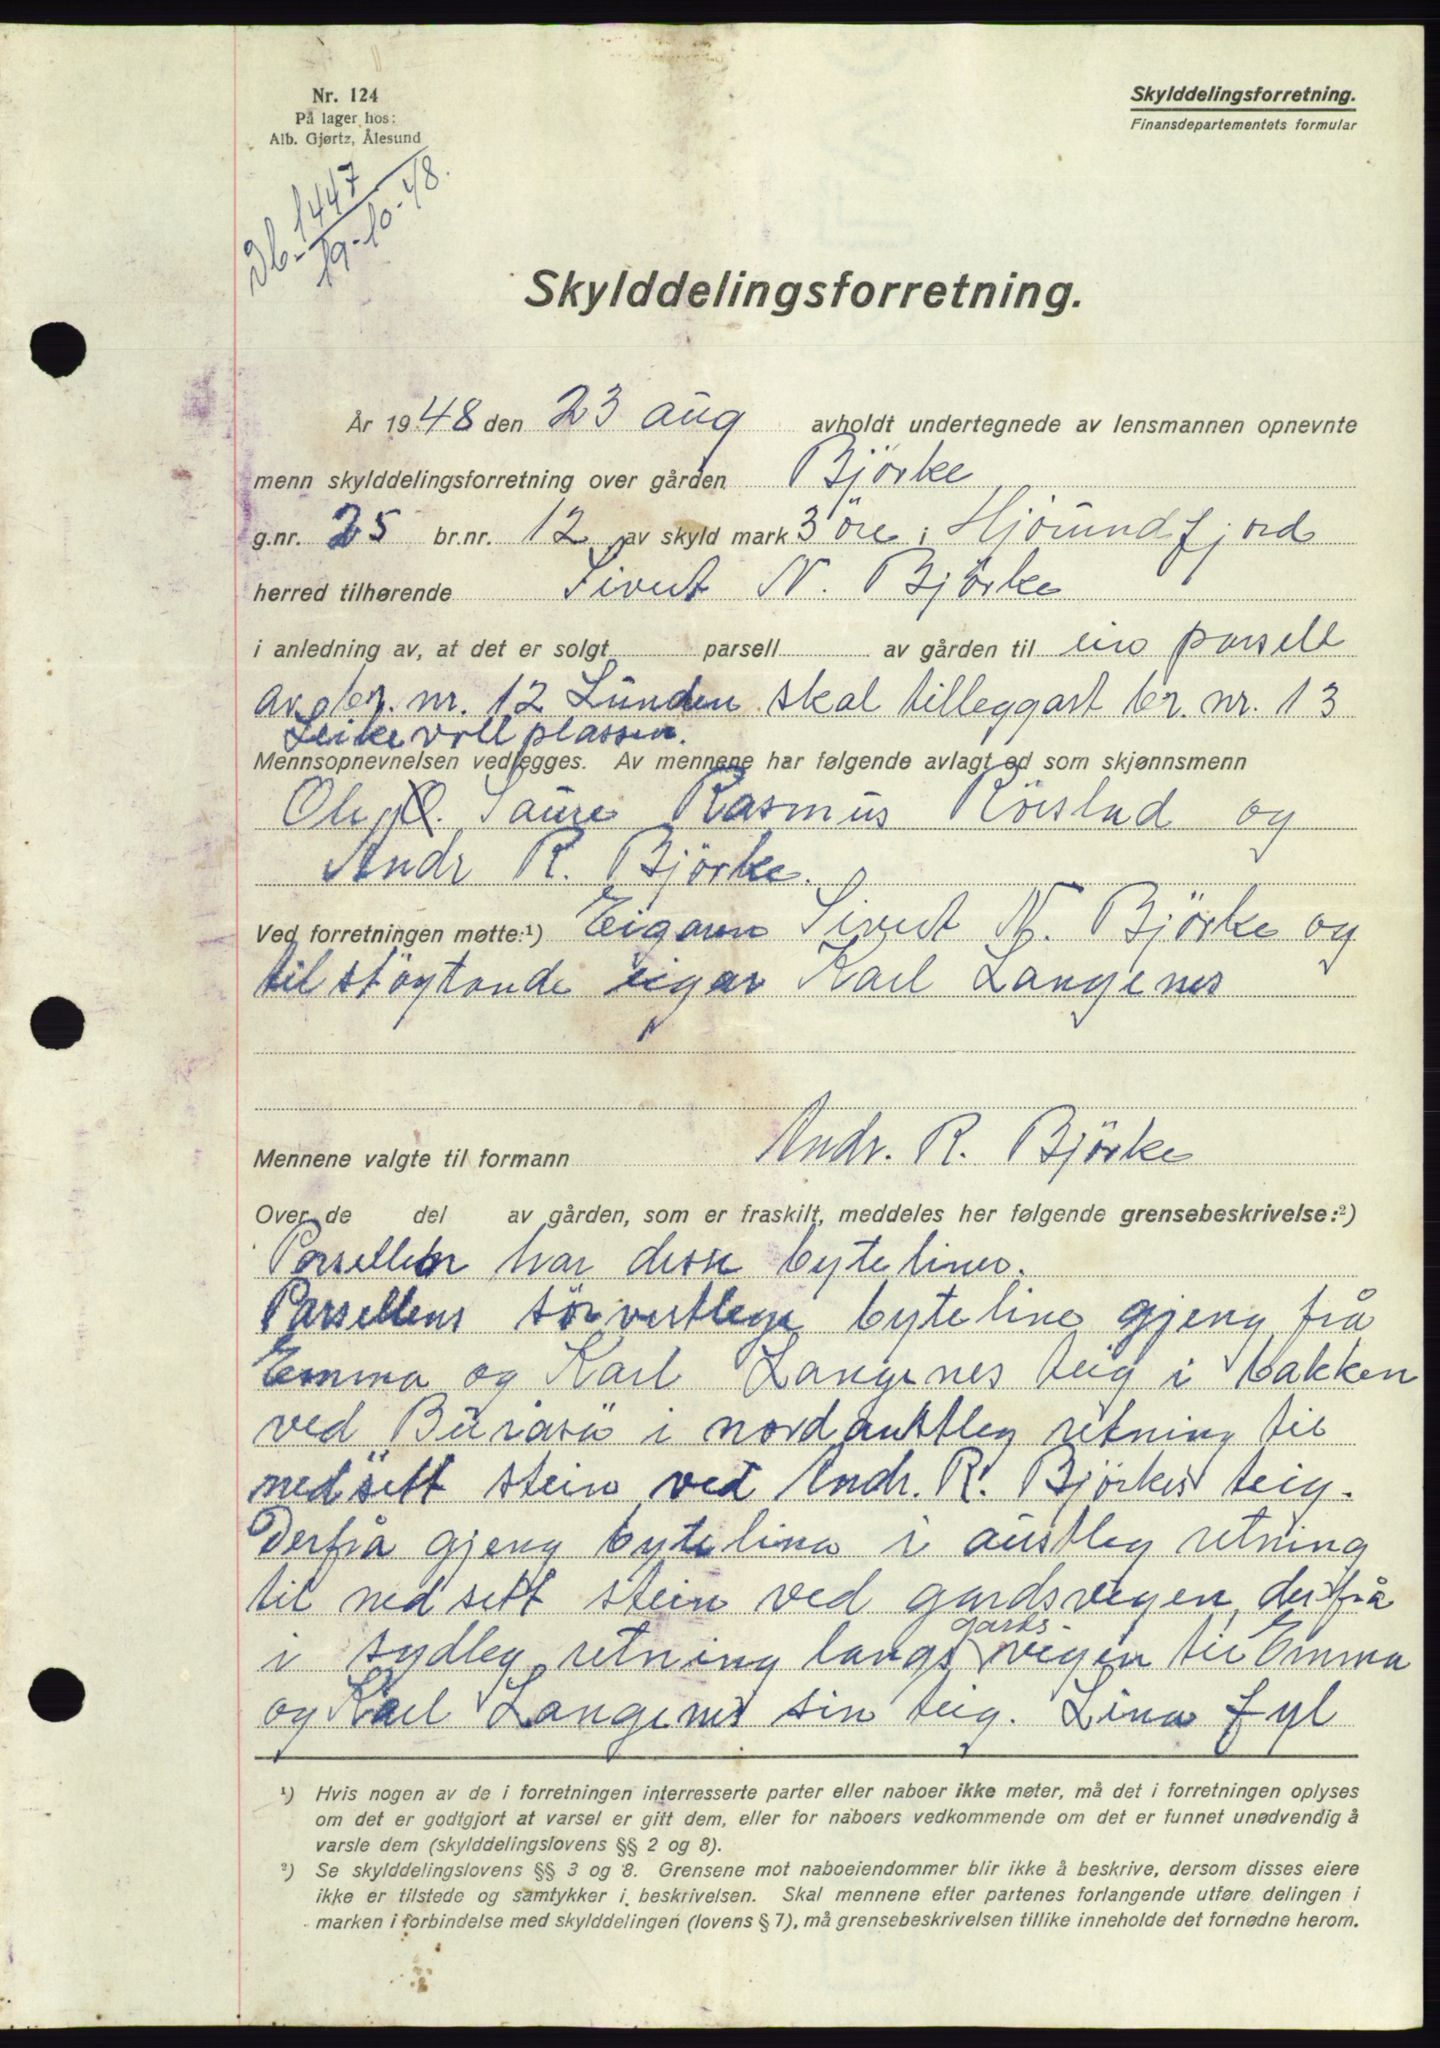 Nr. 124
På lager hos:
Alb. Gjørtz, Ålesund
Skylddelingsforretning.
Finansdepartementets formular
Db. 1447
19-10-48.
Skylddelingsforretning.
År 1948 den 23 aug avholdt undertegnede av lensmannen opnevnte
menn skylddelingsforretning over gården Björke
g.nr. 25 br.nr. 12 av skyld mark 3 öre i Hjörundfjord
herred tilhørende Sivert N. Björke
i anledning av, at det er solgt parsell av gården til ein parsell
av br. nr. 12 Lunden skal tilleggast br. nr. 13
Leikevollplassen.
Mennsopnevnelsen vedlegges. Av mennene har følgende avlagt ed som skjønnsmenn
Ole O. Saure Rasmus Rörstad og
Andr R. Björke.
Ved forretningen møtte:¹) Eigaren Sivert N. Björke og
tilstöytande eigar Karl Langenes
Mennene valgte til formann Andr. R. Björke
Over de del av gården, som er fraskilt, meddeles her følgende grensebeskrivelse:²)
Parsellen har desse byteliner.
Parsellens sörvestlege byteline gjeng frå
Emma og Karl Langenes teig i bakken
ved Buråsa i nordaustleg retning til
nedsett stein ved Andr. R. Björkes teig.
Derfrå gjeng bytelina i austleg retning
til nedsett stein ved gardsvegen, derfrå
i sydleg retning langs gardsvegen til Emma
og Karl Langenes sin teig. Lina fyl
¹) Hvis nogen av de i forretningen interresserte parter eller naboer ikke møter, må det i forretningen oplyses
om det er godtgjort at varsel er gitt dem, eller for naboers vedkommende om det er funnet unødvendig å
varsle dem (skylddelingslovens §§ 2 og 8).
²) Se skylddelingslovens §§ 3 og 8. Grensene mot naboeiendommer blir ikke å beskrive, dersom disses eiere
ikke er tilstede og samtykker i beskrivelsen. Skal mennene efter partenes forlangende utføre delingen i
marken i forbindelse med skylddelingen (lovens § 7), må grensebeskrivelsen tillike inneholde det fornødne herom.